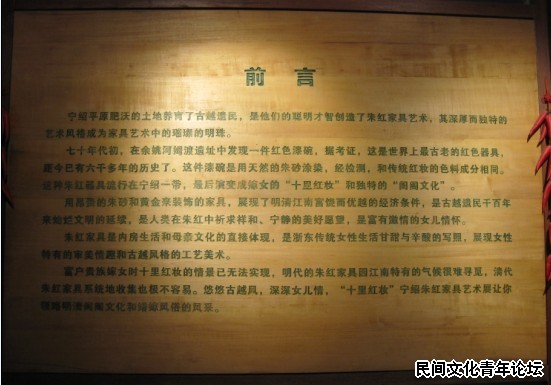 前言
宁绍平原肥沃的土地养育了古越遗民，是他们的聪明才智创造了朱红家具艺术，其深厚而独特的
艺术风格成为家具艺术中的璀璨的明珠。
七十年代初，在余姚河姆渡遗址中发现一件红色漆碗，据考证，这是世界上最古老的红色器具，
距今已有六千多年的历史了。这件漆碗是用天然的朱砂涂染，经检测，和传统红妆的色料成分相同。
这种朱红器具流行在宁绍一带，最后演变成嫁女的“十里红妆”和独特的“闺阁文化”。
用昂贵的朱砂和黄金来装饰的家具，展现了明清江南富饶而优越的经济条件，是古越遗民千百年
来灿烂文明的延续，是人类在朱红中祈求祥和、宁静的美好愿望，是富有激情的女儿情怀。
朱红家具是内房生活和母亲文化的直接体现，是浙东传统女性生活甘甜与辛酸的写照，展现女性
特有的审美性趣和古越风格的工艺美术。
富户贵族嫁女时十里红妆的情景已无法实现，明代的朱红家具因江南特有的气候很难寻见，清代
朱红家具系统地收集也很不容易。悠悠古越风，深深女儿情，“十里红妆”宁绍朱红家具艺术展让你
领略明清闺阁文化和婚嫁风俗的风采。
民间文化青年论坛